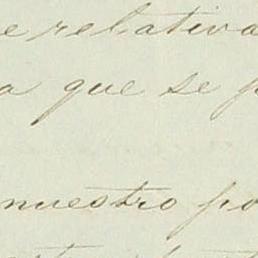 e relativa
a que se p
nuestro po